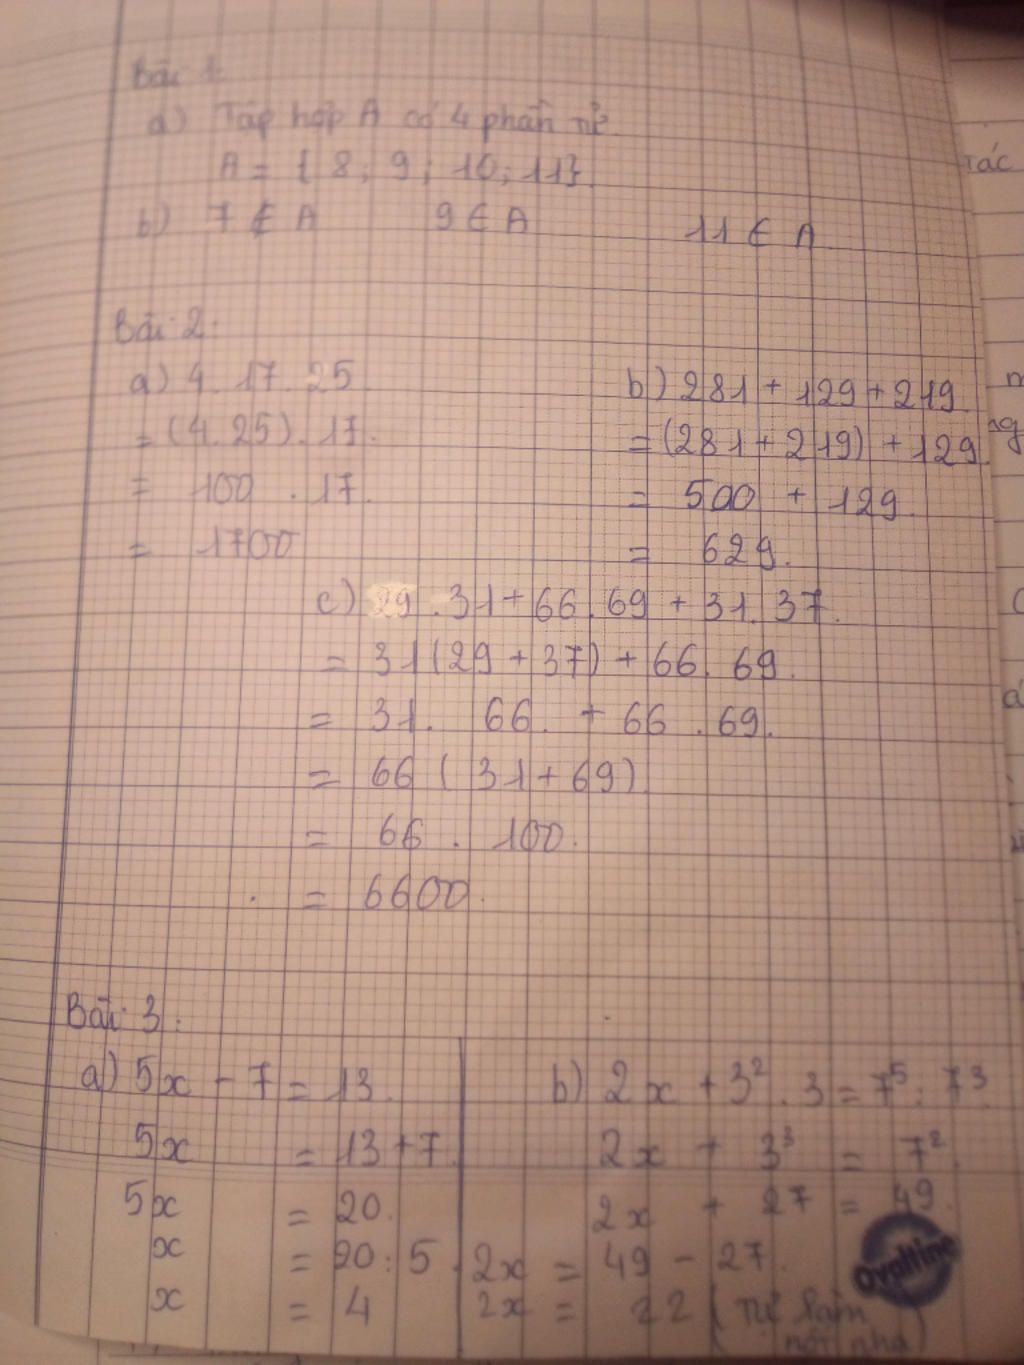 Bài 1:
a) Tập hợp A có 4 phần tử.
A = { 8; 9; 10; 11}.
b) 7 ∉ A 9 ∈ A 11 ∈ A
Bài 2:
a) 4 . 17 . 25
= (4 . 25) . 17.
= 100 . 17.
= 1700
b) 281 + 129 + 219
= (281 + 219) + 129
= 500 + 129.
= 629.
c) 29 . 31 + 66 . 69 + 31 . 37.
= 31 (29 + 37) + 66 . 69.
= 31 . 66 + 66 . 69.
= 66 ( 31 + 69)
= 66 . 100.
= 6600.
Bài 3:
a) 5x - 7 = 13.
5x = 13 + 7.
5x = 20.
x = 20 : 5.
x = 4
b) 2x + 3² . 3 = 7⁵ : 7³
2x + 3³ = 7².
2x + 27 = 49.
2x = 49 - 27.
2x = 22 (Tự làm
nốt nha)
Ovaltine
tác
ng